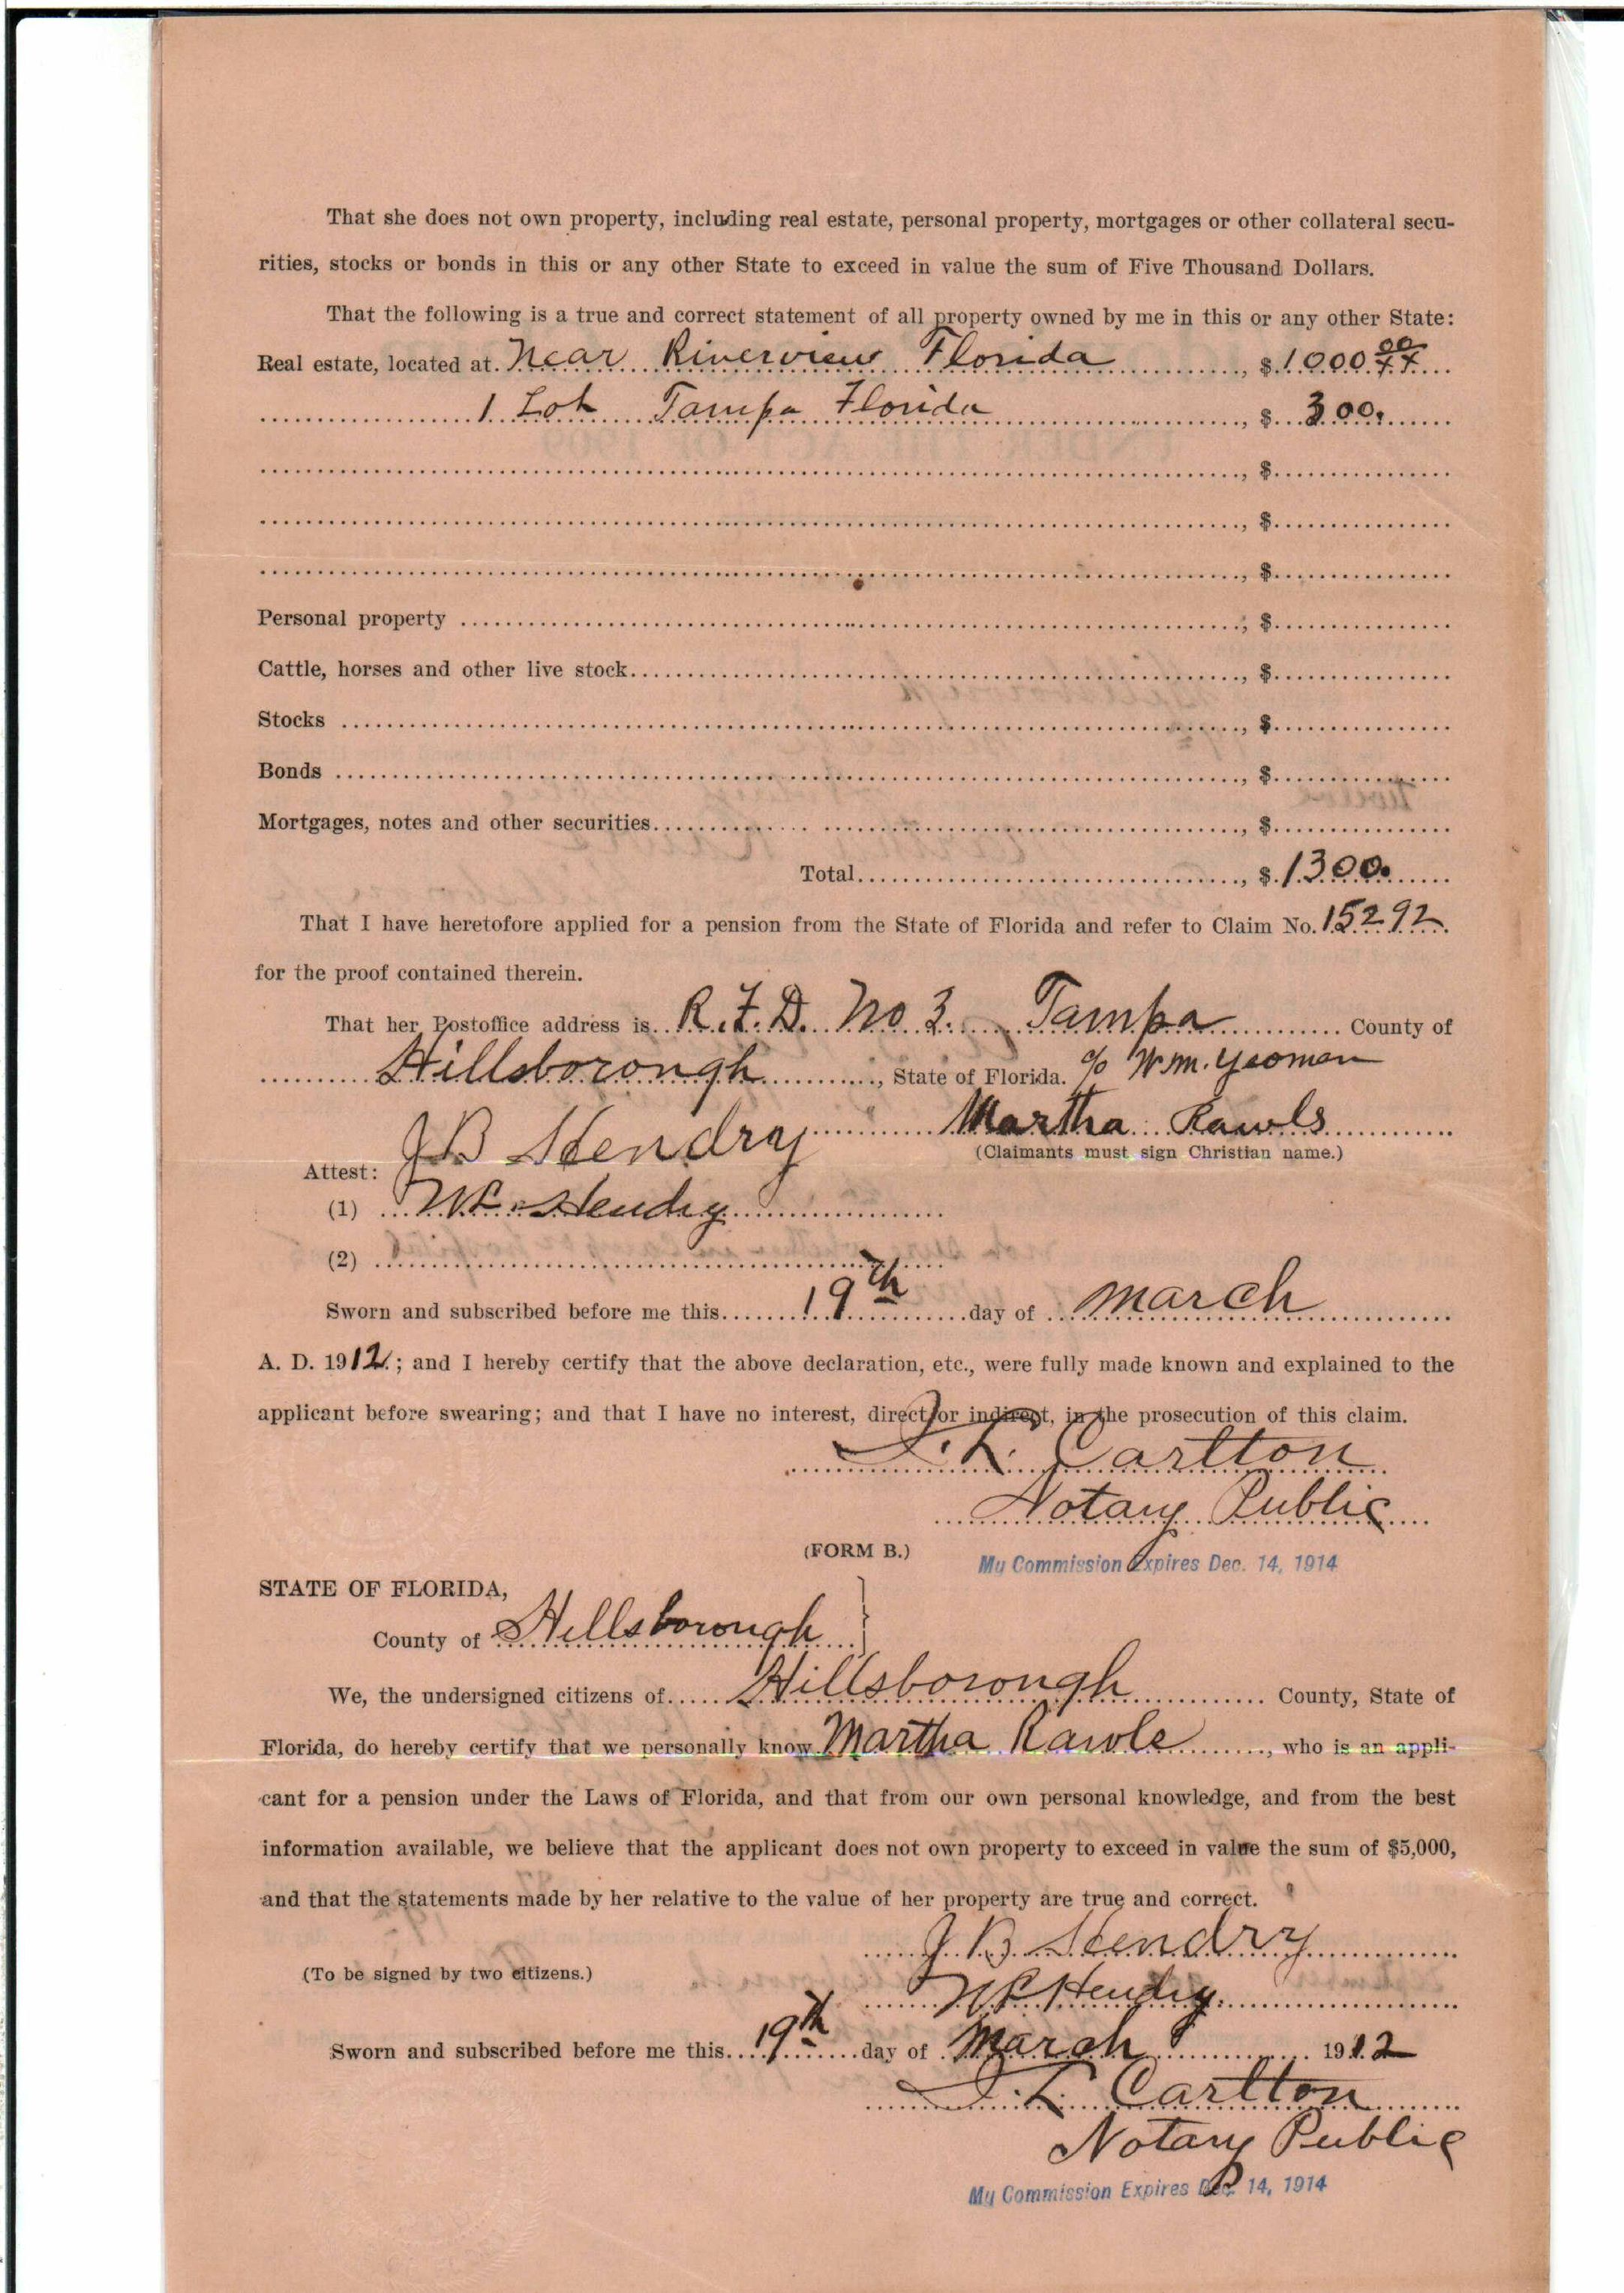 That she does not own property, including real estate, personal property, mortgages or other collateral secu-
rities, stocks or bonds in this or any other State to exceed in value the sum of Five Thousand Dollars.
That the following is a true and correct statement of all property owned by me in this or any other State:
Real estate, located at Near Riverview Florida, $1000 00/xx
1 Lot Tampa Florida, $300.
, $
, $
, $
Personal property, $
Cattle, horses and other live stock, $
Stocks, $
Bonds, $
Mortgages, notes and other securities, $
Total, $1300.
That I have heretofore applied for a pension from the State of Florida and refer to Claim No. 15292
for the proof contained therein.
That her Postoffice address is R.F.D. No 3. Tampa County of
Hillsborough, State of Florida. c/o W.M. Yeoman
Martha Rawls
(Claimants must sign Christian name.)
J B Hendry
Attest:
(1) W Hendry
(2)
Sworn and subscribed before me this 19th day of March
A. D. 1912; and I hereby certify that the above declaration, etc., were fully made known and explained to the
applicant before swearing; and that I have no interest, direct or indirect, in the prosecution of this claim.
L. Carlton
Notary Public
(FORM B.)
My Commission Expires Dec. 14, 1914
STATE OF FLORIDA,
County of Hillsborough
We, the undersigned citizens of Hillsborough County, State of
Florida, do hereby certify that we personally know Martha Rawls, who is an appli-
cant for a pension under the Laws of Florida, and that from our own personal knowledge, and from the best
information available, we believe that the applicant does not own property to exceed in value the sum of $5,000,
and that the statements made by her relative to the value of her property are true and correct.
J B Hendry
(To be signed by two citizens.)
W Hendry
Sworn and subscribed before me this 19th day of March 1912
L. Carlton
Notary Public
My Commission Expires Dec. 14, 1914